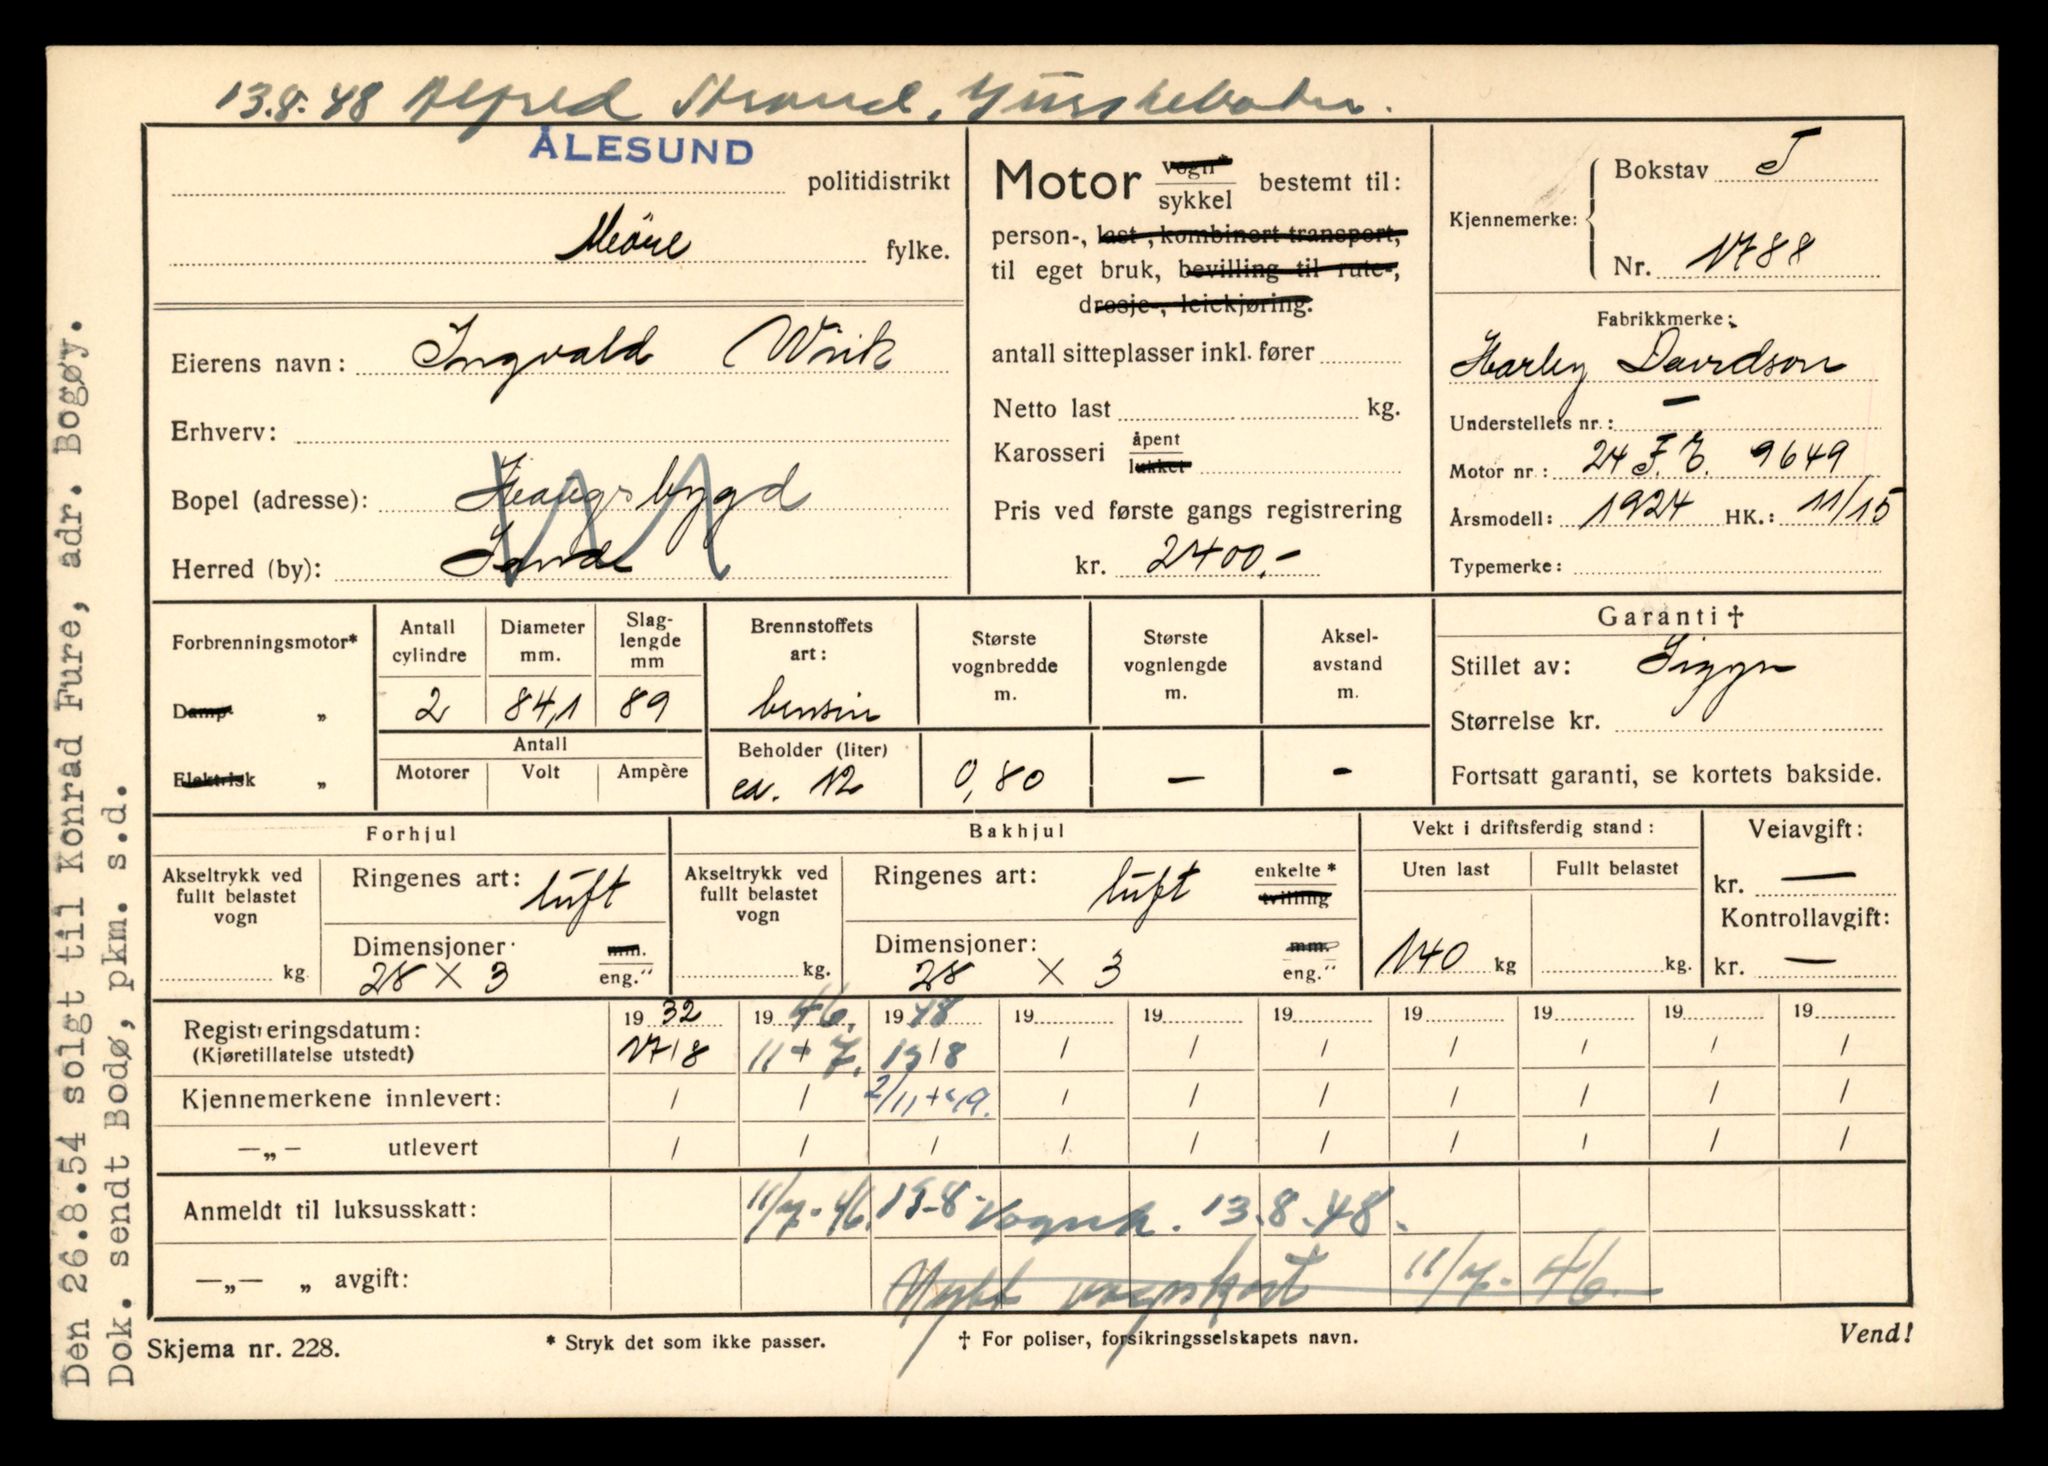 13.8.48 Alfred Strand, Gurskebotn.
ÅLESUND
politidistrikt
Möre fylke.
Eierens navn: Ingvald Wiik
Erhverv:
Bopel (adresse): Haugsbygd
Herred (by): Sande
Motor vogn* sykkel bestemt til:
person-, last-, kombinert transport,
til eget bruk, bevilling til rute-,
drosje-, leiekjøring.
antall sitteplasser inkl. fører
Netto last kg.
Karosseri åpent lukket
Pris ved første gangs registrering
kr. 2400,-
Kjennemerke: Bokstav T
Nr. 1788
Fabrikkmerke:
Harley Davidson
Understellets nr.: —
Motor nr.: 24 F.E. 9649
Årsmodell: 1924 HK.: 11/15
Typemerke:
Forbrenningsmotor*
Damp „
Elektrisk „
Antall cylindre
2
Diameter mm.
84,1
Slaglengde mm
89
Antall
Motorer Volt Ampère
Brennstoffets art:
bensin
Beholder (liter)
ca. 12
Største vognbredde m.
0,80
Største vognlengde m.
—
Akselavstand m.
-
Garanti †
Stillet av: Sigyn
Størrelse kr.
Fortsatt garanti, se kortets bakside.
Forhjul
Akseltrykk ved fullt belastet vogn
kg.
Ringenes art: luft
Dimensjoner: mm. eng."
28 x 3
Bakhjul
Akseltrykk ved fullt belastet vogn
kg.
Ringenes art: luft enkelte* tvilling
Dimensjoner: mm. eng."
28 x 3
Vekt i driftsferdig stand:
Uten last Fullt belastet
140 kg kg.
Veiavgift:
kr. —
Kontrollavgift:
kr. —
Registreringsdatum: 1932 1946. 1948 19 19 19 19 19 19 19
(Kjøretillatelse utstedt) 17/8 11+7. 13/8 / / / / / / /
Kjennemerkene innlevert: / / 2/11+49. / / / / / / /
—„— utlevert / / / / / / / / / /
Anmeldt til luksusskatt: 11/7-46. 13-8- Vognk. 13.8.48.
—„— „ avgift: Nytt vognkort 11/7-46.
Skjema nr. 228.
* Stryk det som ikke passer.
† For poliser, forsikringsselskapets navn.
Vend!
Den 26.8.54 solgt til Konrad Fure, adr. Bogøy.
Dok. sendt Bodø, pkm. s.d.